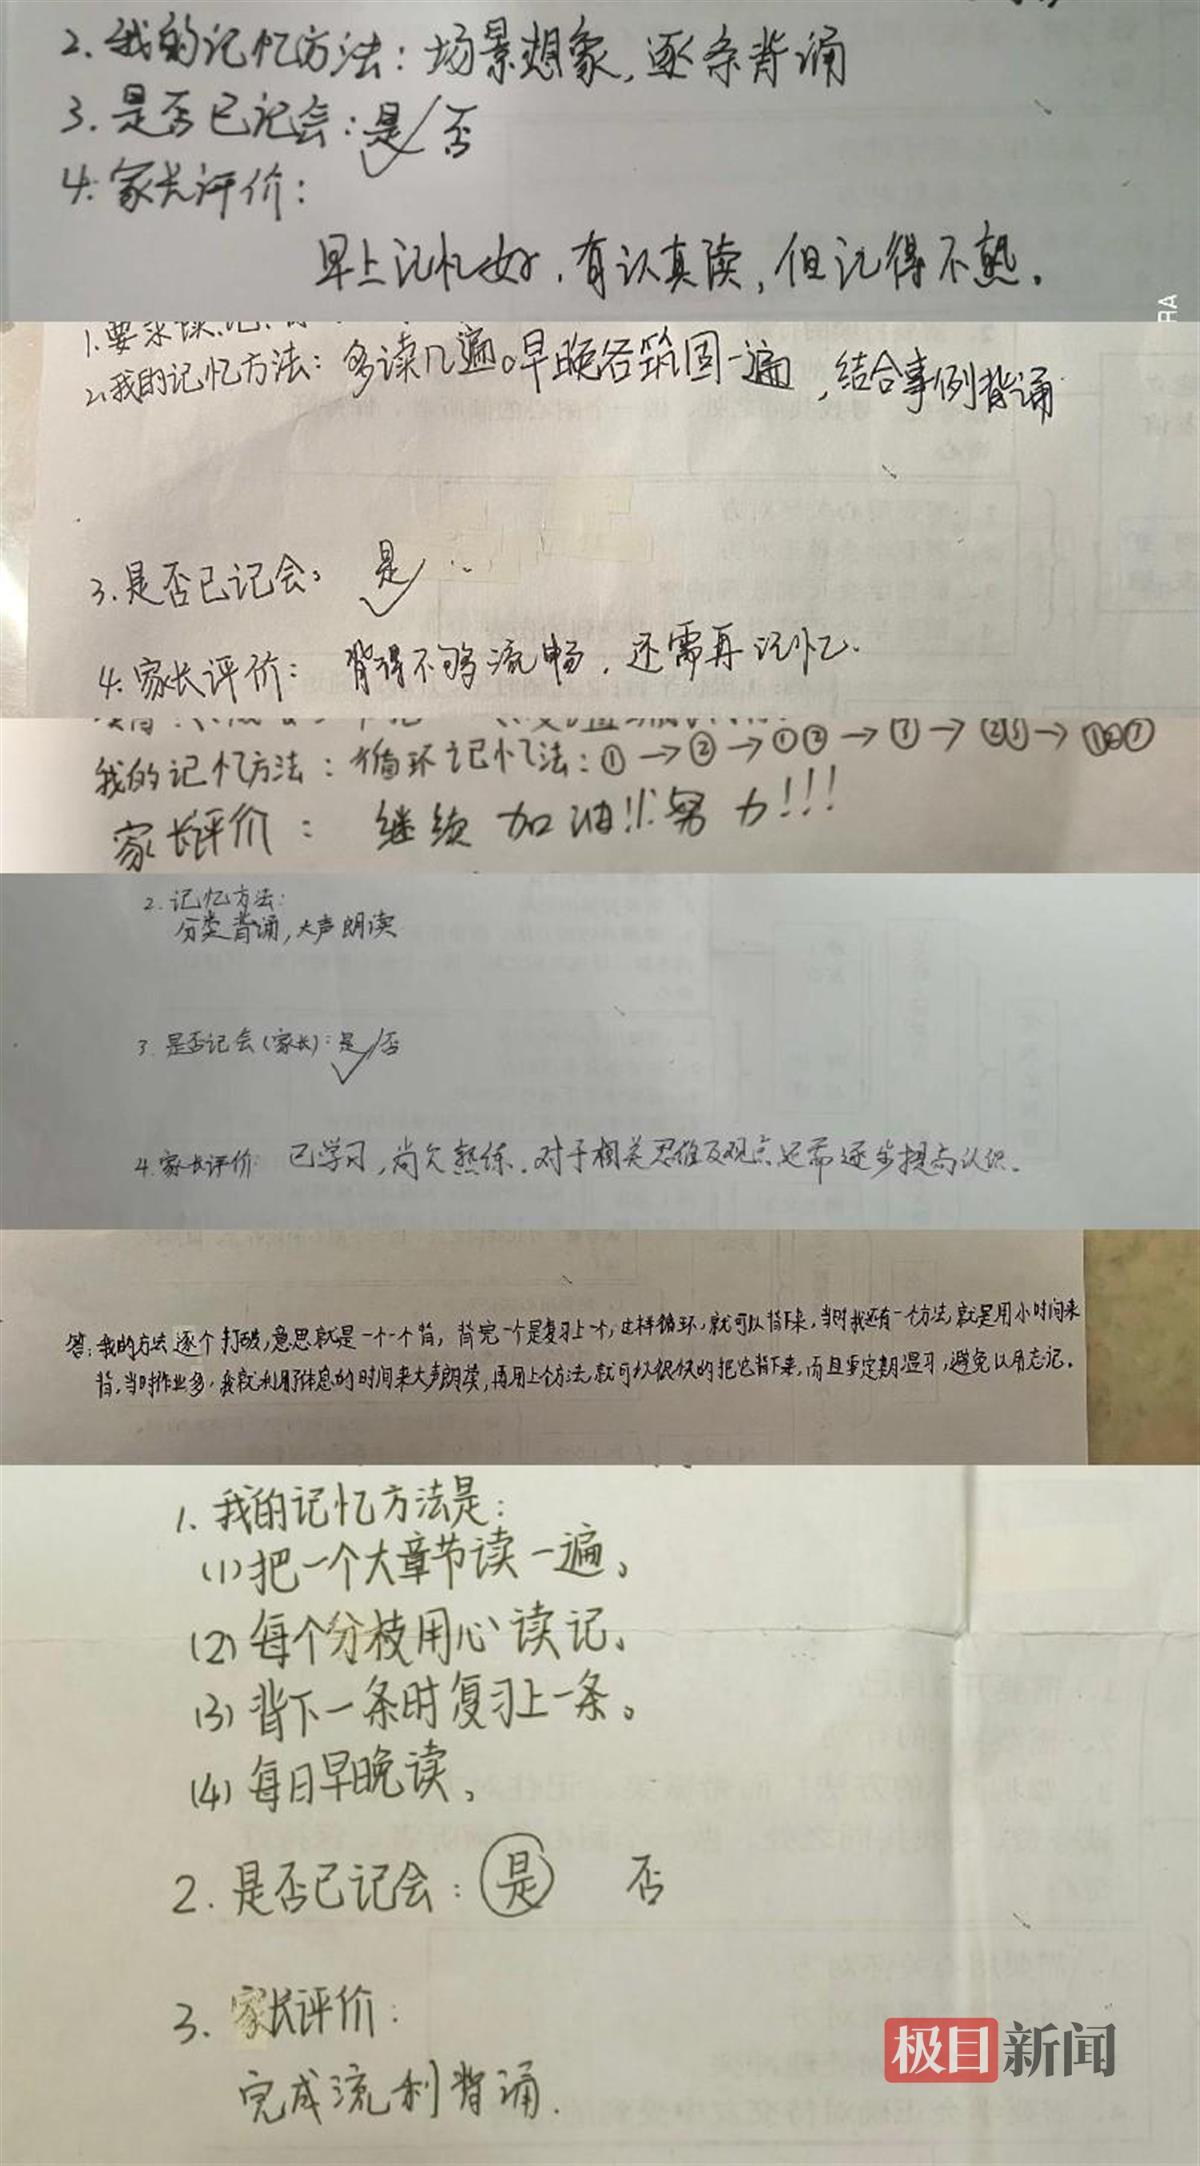 2.我的记忆方法：场景想象，逐条背诵
3.是否已记会：是/否
4.家长评价：
早上记忆好，有认真读，但记得不熟。
RA
1.要求
2.我的记忆方法：多读几遍。早晚各筑固一遍，结合事例背诵
3.是否已记会： 是/
4.家长评价：背得不够流畅，还需再记忆.
我的记忆方法：循环记忆法：①→②→①②→
家长评价：继续加油!!努力!!!
2.记忆方法：
分类背诵，大声朗读
3.是否记会(家长)：是/否
4.家长评价 已学习，尚欠熟练.对于相关思维及观点还需逐步提高认识.
答：我的方法逐个打破，意思就是一个一个背，背完一个是复习上一个，这样循环，就可以背下来，当时我还有一个方法，就是用小时间来
背，当时作业多，我就利用了休息的时间来大声朗读，再用上个方法，就可以很快的把它背下来，而且要定期温习，避免以后忘记。
1.我的记忆方法是：
(1)把一个大章节读一遍。
(2)每个分枝用心读记。
(3)背下一条时复习上一条。
(4)每日早晚读。
2.是否已记会：是 否
3.家长评价：
完成流利背诵.
极目新闻